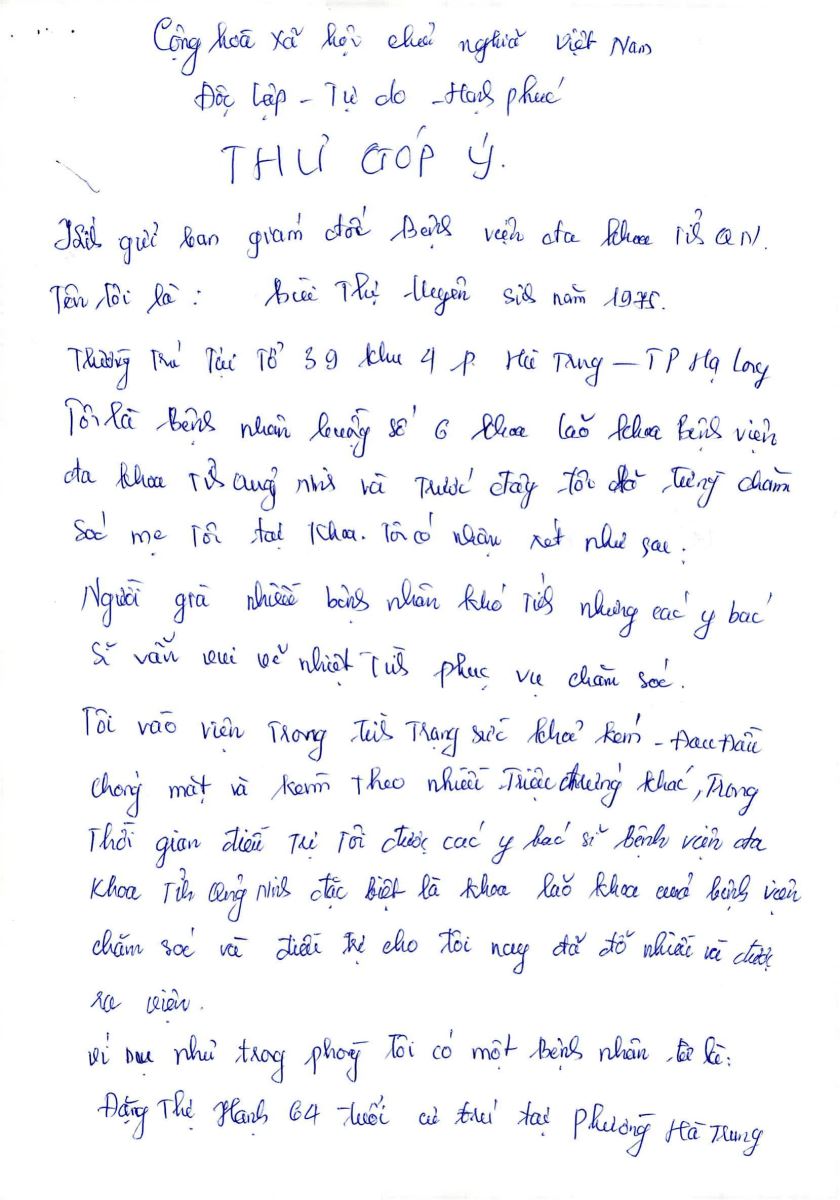 Cộng hoà xã hội chủ nghĩa việt Nam
Độc lập - Tự do - Hạnh phúc
THƯ GÓP Ý.
Kính gửi ban giám đốc Bệnh viện đa khoa Tỉnh QN.
Tên tôi là : Bùi Thị Uyên sinh năm 1975.
Thường Trú Tại Tổ 39 khu 4 p. Hà Trung - TP Hạ Long
Tôi là bệnh nhân buồng số 6 khoa lão khoa bệnh viện
đa khoa Tỉnh Quảng ninh và Trước đây tôi đã từng chăm
sóc mẹ Tôi tại khoa. Tôi có nhận xét như sau :
Người già nhiều bệnh nhân khó tính nhưng các y bác
sĩ vẫn vui vẻ nhiệt Tình phục vụ chăm sóc.
Tôi vào viện Trong tình Trạng sức khoẻ kém - Đau Đầu
chóng mặt và kèm theo nhiều Triệu chứng khác, Trong
Thời gian điều Trị Tôi được các y bác sĩ bệnh viện đa
khoa Tỉnh Quảng Ninh đặc biệt là khoa lão khoa của bệnh viện
chăm sóc và điều trị cho tôi nay đã đỡ nhiều và được
ra viện.
ví dụ như trong phòng Tôi có một bệnh nhân là:
Đặng Thị Hạnh 64 tuổi cư trú tại phường Hà Trung